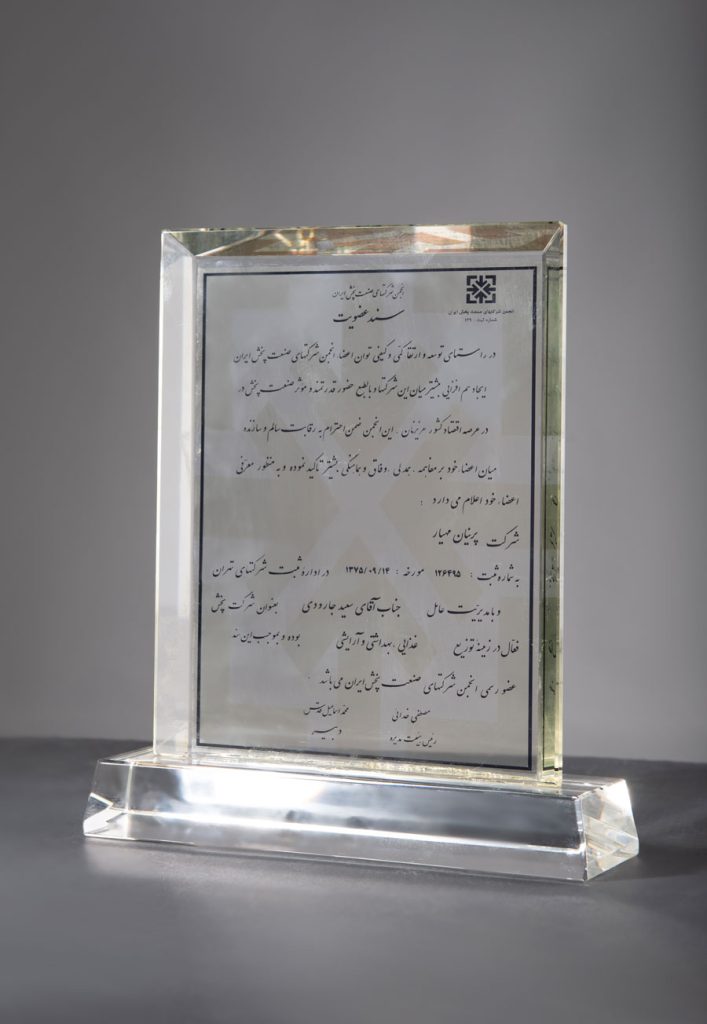 انجمن شرکتهای صنعت پخش ایران
سند عضویت
انجمن شرکتهای صنعت پخش ایران
شماره ثبت : ۱۳۹
در راستای توسعه و ارتقاء کمّی و کیفی توان اعضاء، انجمن شرکتهای صنعت پخش ایران
ایجاد هم افزائی بیشتر میان این شرکتها و بالطبع حضور قدرتمند و مؤثر صنعت پخش در
در عرصه اقتصاد کشور عزیزمان . این انجمن ضمن احترام به رقابت سالم و سازنده
میان اعضاء خود بر مفاهمه ، همدلی ، وفاق و هماهنگی بیشتر تاکید نموده و به منظور معرفی
اعضاء خود اعلام می دارد :
شرکت پرنیان مهیار
به شماره ثبت : ۱۲۶۴۹۵ مورخه : ۱۳۷۵/۰۹/۱۴ در اداره ثبت شرکتهای تهران
و با مدیریت عامل جناب آقای سعید جارودی بعنوان شرکت پخش
فعال در زمینه توزیع غذایی ، بهداشتی و آرایشی بوده و بموجب این سند
عضو رسمی انجمن شرکتهای صنعت پخش ایران می باشد .
مصطفی فدائی محمد اسماعیل
رئیس هیئت مدیره دبیر